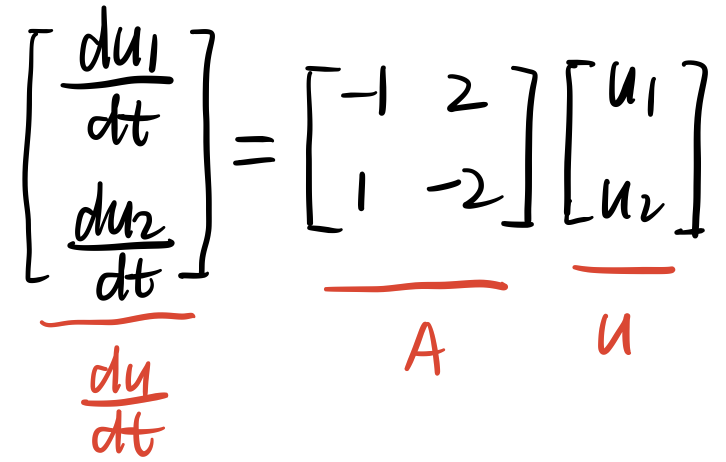 [du1/dt du2/dt] = [-1 2 1 -2] [u1 u2]
du/dt A u